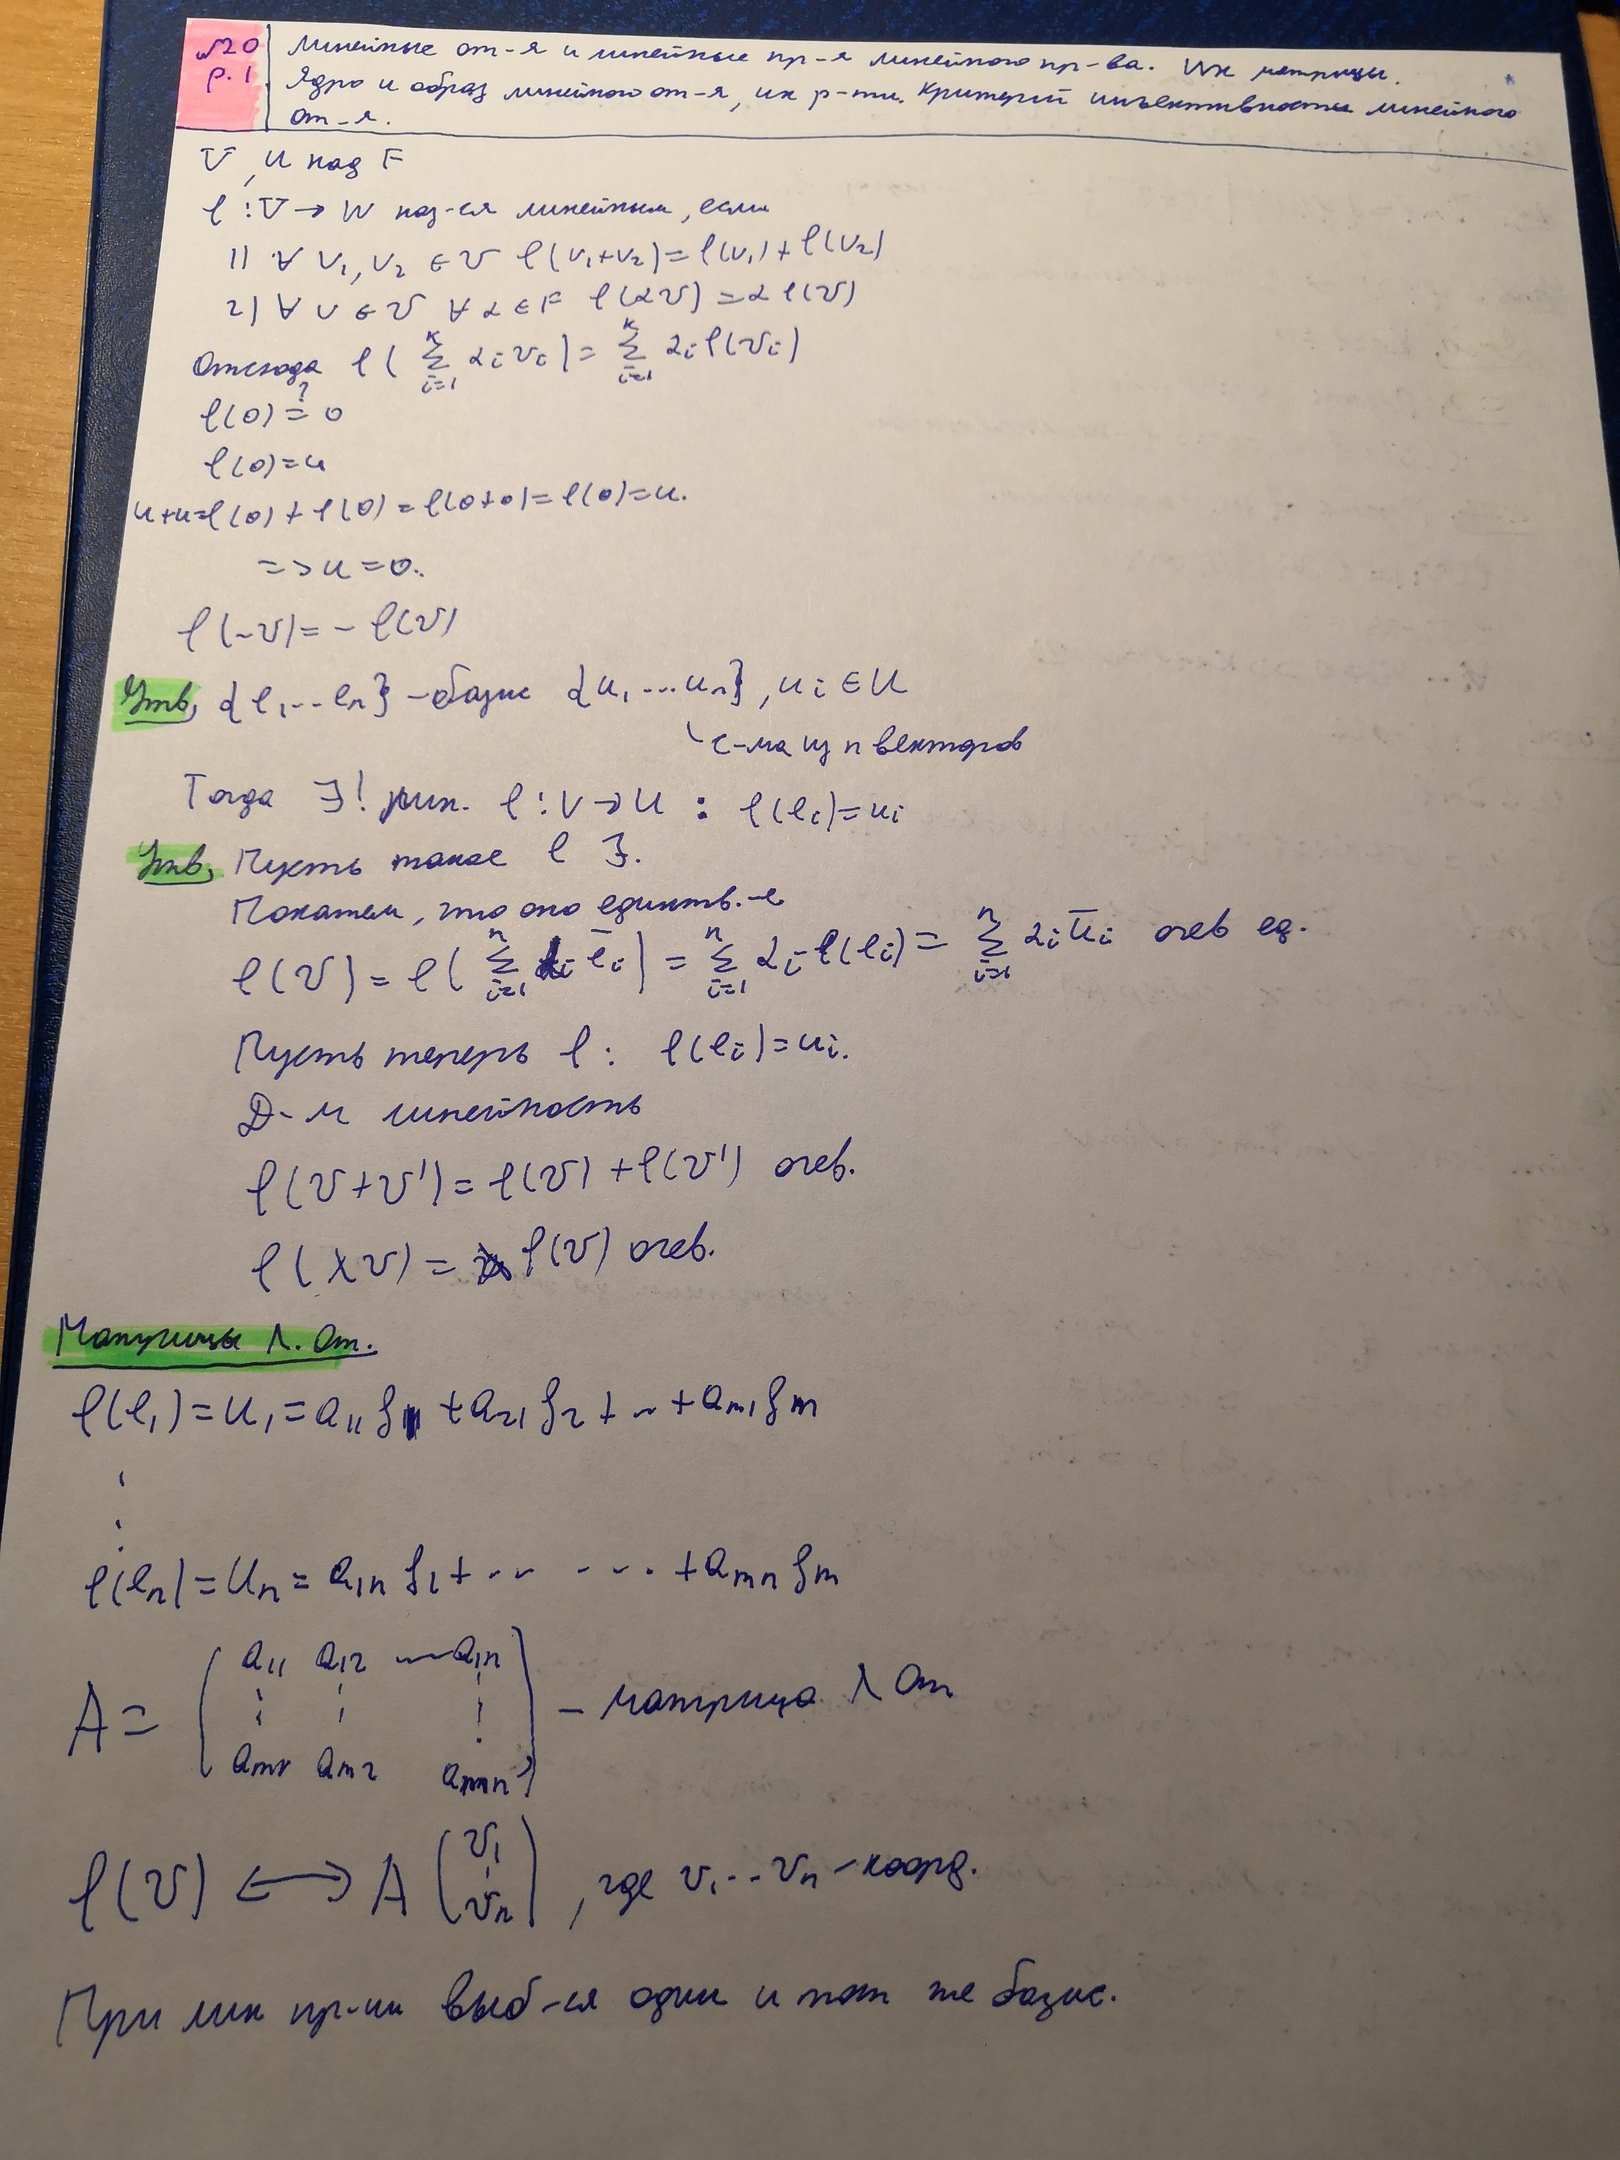 №20 Линейные от-я и линейные пр-я линейного пр-ва. Их матрицы.
р. 1. Ядро и образ линейного от-я, их р-ти. Критерий инъективности линейного
от-я.
V, U над F
φ : V → W наз-ся линейным, если
1) ∀ v₁, v₂ ∈ V φ(v₁+v₂) = φ(v₁) + φ(v₂)
2) ∀ v ∈ V ∀ α ∈ F φ(αv) = α φ(v)
Отсюда φ( ∑ᵢ₌₁ᵏ αᵢ vᵢ ) = ∑ᵢ₌₁ᵏ αᵢ φ(vᵢ)
φ(0) =? 0
φ(0) = u
u+u = φ(0) + φ(0) = φ(0+0) = φ(0) = u.
=> u = 0.
φ(-v) = - φ(v)
Утв, {e₁ ... eₙ} - базис {u₁ ... uₙ}, uᵢ ∈ U
с-ма из n векторов
Тогда ∃! лин. φ : V → U : φ(eᵢ) = uᵢ
Утв, Пусть такое φ ∃.
Покажем, что оно единств.-е
φ(v) = φ( ∑ᵢ₌₁ⁿ αᵢ ēᵢ ) = ∑ᵢ₌₁ⁿ αᵢ φ(eᵢ) = ∑ᵢ₌₁ⁿ αᵢ ūᵢ очев ед.
Пусть теперь φ : φ(eᵢ) = uᵢ.
Д-м линейность
φ(v + v') = φ(v) + φ(v') очев.
φ(λv) = λ φ(v) очев.
Матрицы Л. От.
φ(e₁) = u₁ = a₁₁ f₁ + a₂₁ f₂ + ... + aₘ₁ fₘ
⋮
φ(eₙ) = uₙ = a₁ₙ f₁ + ... ... + aₘₙ fₘ
A = ( a₁₁ a₁₂ ... a₁ₙ
⋮ ⋮ ⋮
aₘ₁ aₘ₂ aₘₙ ) - матрица Л От
φ(v) ↔ A ( v₁ ⋮ vₙ ) , где v₁ ... vₙ - коорд.
При лин пр-ии выб-ся один и тот же базис.